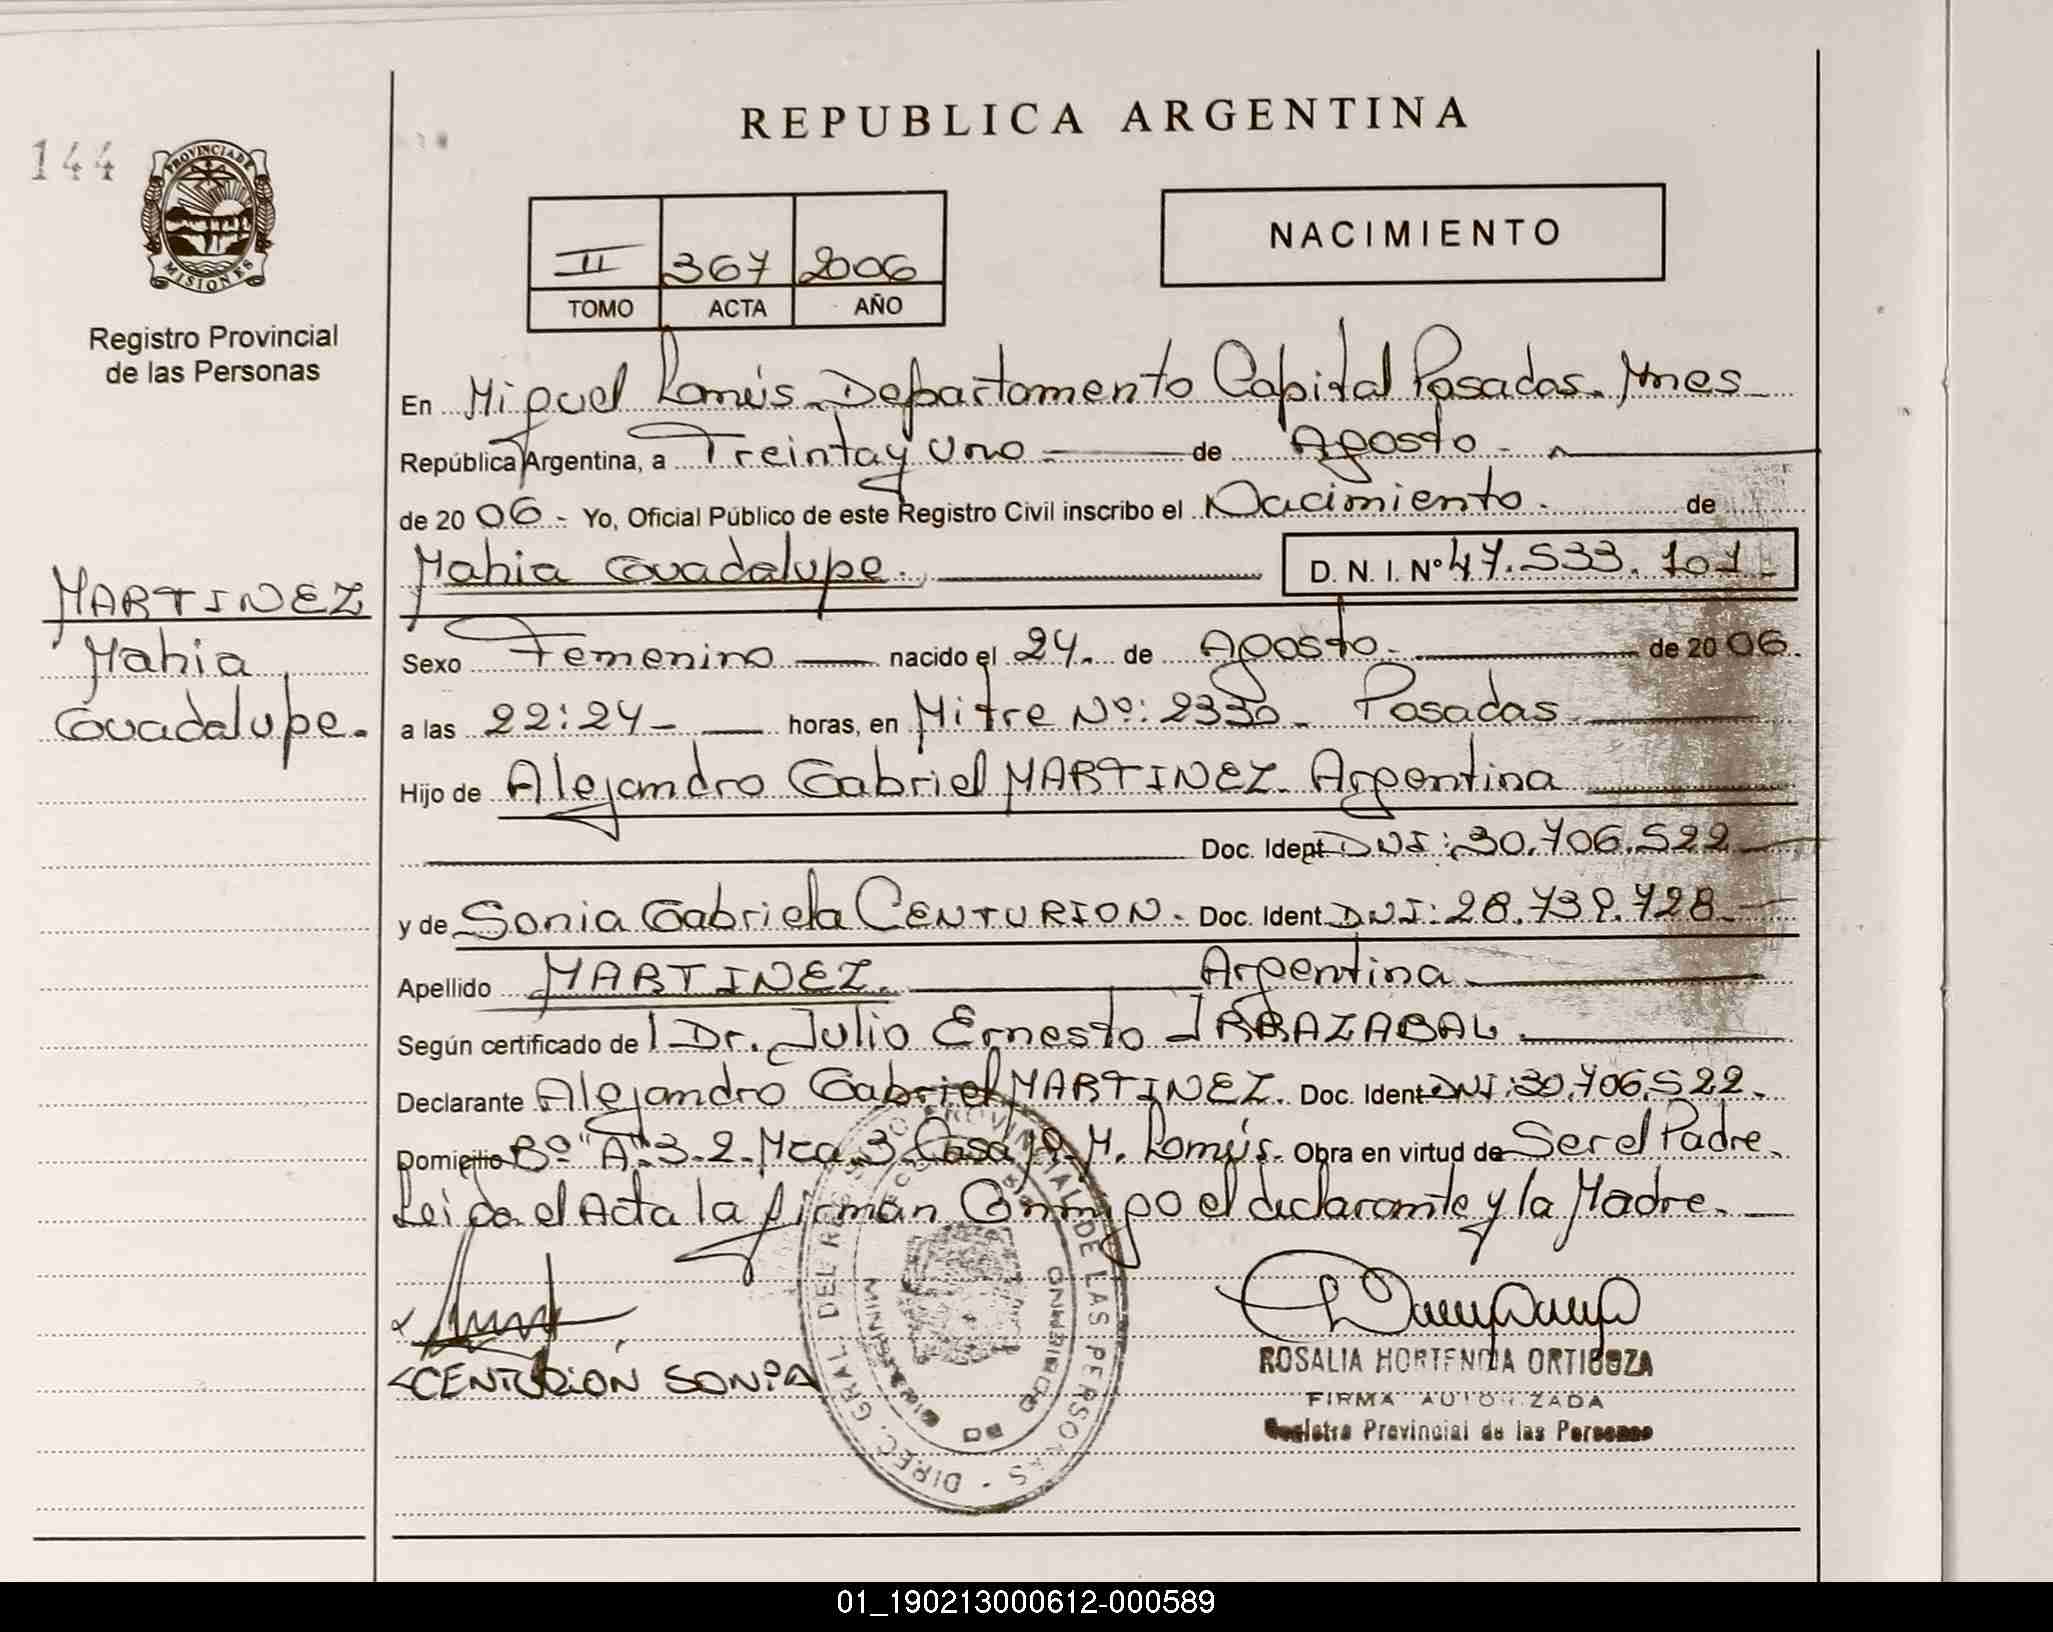 REPUBLICA ARGENTINA
144
PROVINCIA DE
MISIONES
Registro Provincial
de las Personas
II 367 2006
TOMO ACTA AÑO
NACIMIENTO
En Miguel Lanús. Departamento Capital Posadas. Mnes
República Argentina, a Treinta y Uno de Agosto
de 2006 - Yo, Oficial Público de este Registro Civil inscribo el Nacimiento. de
Mahia Guadalupe. D. N. I. Nº 47.533.101
MARTINEZ
Mahia
Guadalupe.
Sexo Femenino nacido el 24. de Agosto. de 2006.
a las 22:24 horas, en Mitre Nº: 2330 Posadas
Hijo de Alejandro Gabriel MARTINEZ. Argentina
Doc. Ident DNI: 30.706.522
y de Sonia Gabriela CENTURION. Doc. Ident. DNI: 28.739.728
Apellido MARTINEZ. Argentina
Según certificado de Dr. Julio Ernesto IRRAZABAL
Declarante Alejandro Gabriel MARTINEZ. Doc. Ident DNI: 30.706.522.
Domicilio Bº "A" 3-2 Mza 3 Casa 19. M. Lanús. Obra en virtud de Ser el Padre.
Leida el Acta la firman Conmigo el declarante y la Madre.
CENTURION SONIA
DIREC. GRAL DEL REGISTRO PROVINCIAL DE LAS PERSONAS
ROSALIA HORTENCIA ORTIGOZA
FIRMA AUTORIZADA
Registro Provincial de las Personas
01_190213000612-000589